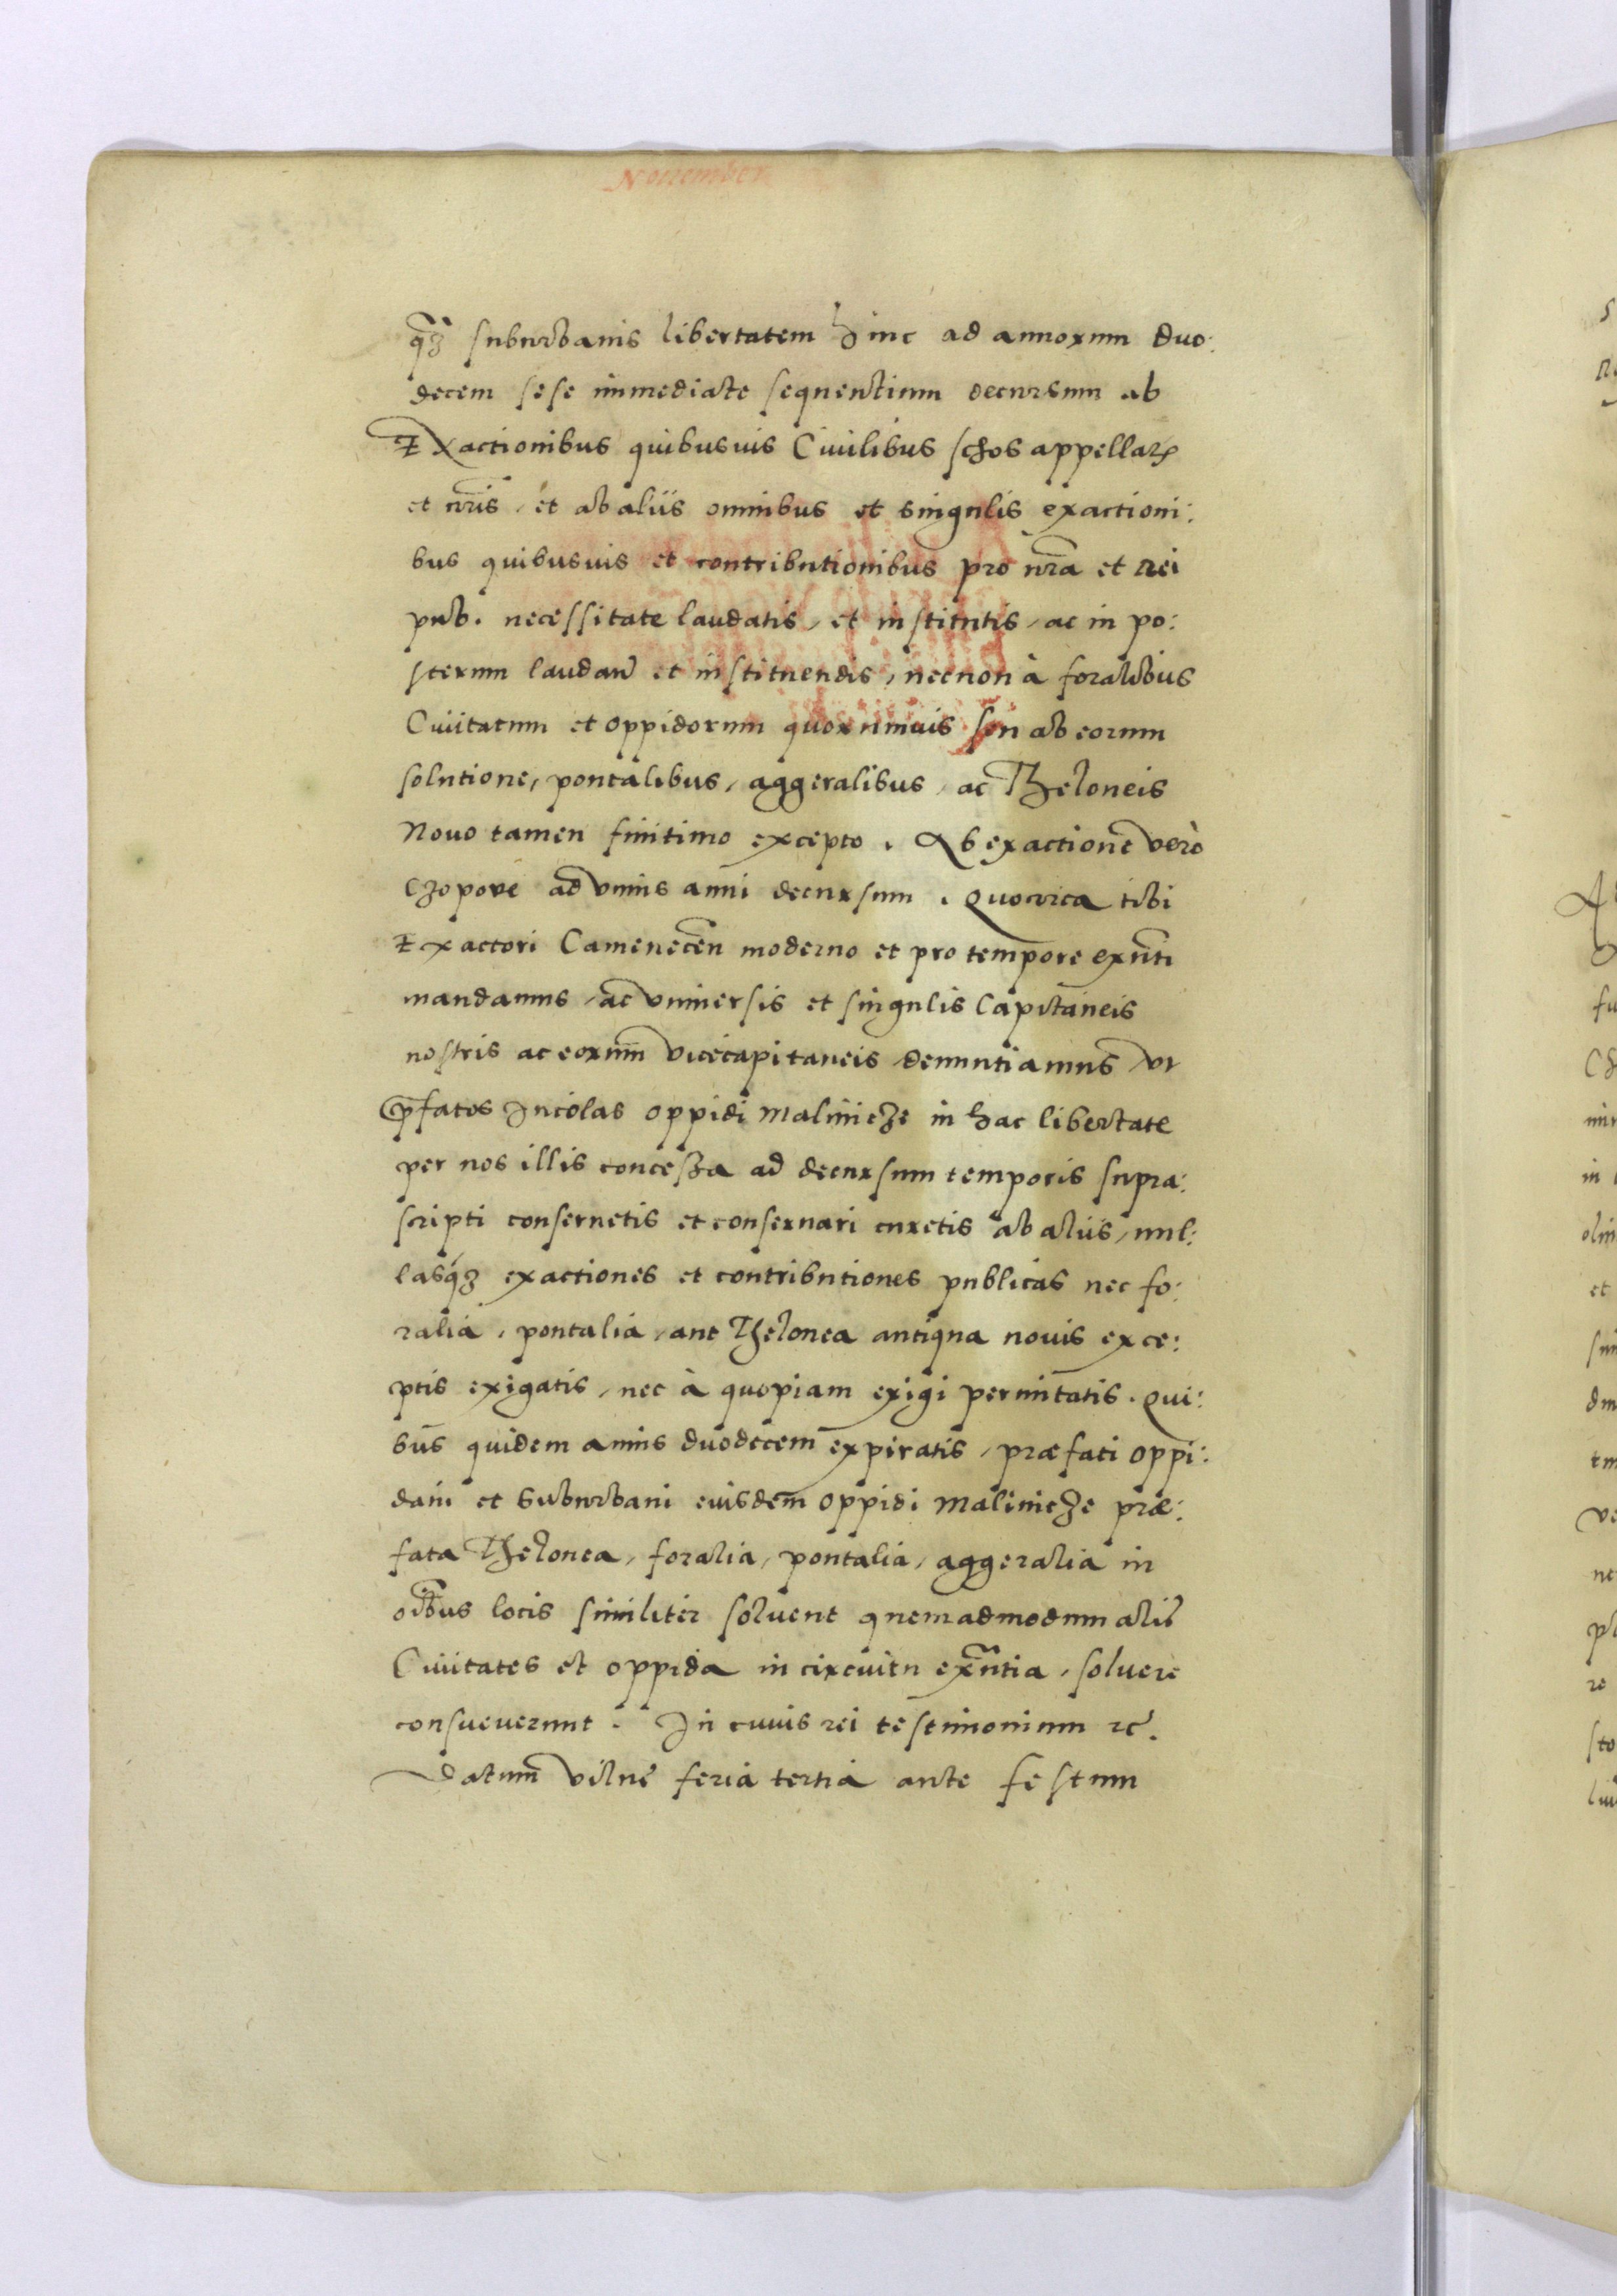 Nouember
q̃ȝ suburbanis libertatem hinc ad annorum duo:
decem sese immediate sequentium decursum ab
Exactionibus quibusuis Ciuilibus schos appellaꝝ
et nr̃is, et ab aliis omnibus et singulis exactioni:
bus quibusuis et contributionibus pro nr̃a et Rei
pub. necessitate laudatis, et institutis, ac in po:
sterum laudan̄ et instituendis, necnon à foralibus
Ciuitatum et oppidorum quorumuis seu ab eorum
solutione, pontalibus, aggeralibus, ac Theloneis
Nouo tamen finitimo excepto. Ab exactione verò
Czopove ad vnius anni decursum. Quocirca tibi
Exactori Camenecen̄ moderno et pro tempore exn̄ti
mandamus, ac vniuersis et singulis Capitaneis
nostris ac eorum vicecapitaneis denuntiamus vt
p̄fatos Incolas oppidi Malinicze in hac libertate
per nos illis concessa ad decursum temporis supra:
scripti conseruetis et conseruari curetis ab aliis, nul:
lasq́ȝ exactiones et contributiones publicas nec fo:
ralia, pontalia, aut Thelonea antiqua nouis exce:
ptis exigatis, nec à quopiam exigi permittatis. Qui:
bus quidem annis duodecem expiratis, præfati oppi:
dani et Suburbani eiusdem oppidi Malinicze præ:
fata Thelonea, foralia, pontalia, aggeralia in
oĩbus locis similiter soluent quemadmodum aliȩ
Ciuitates et oppida in circuitu exñtia, soluere
consueuerunt. In cuius rei testimonium ⁊c̃.
Datum vilnȩ feria tertia ante festum